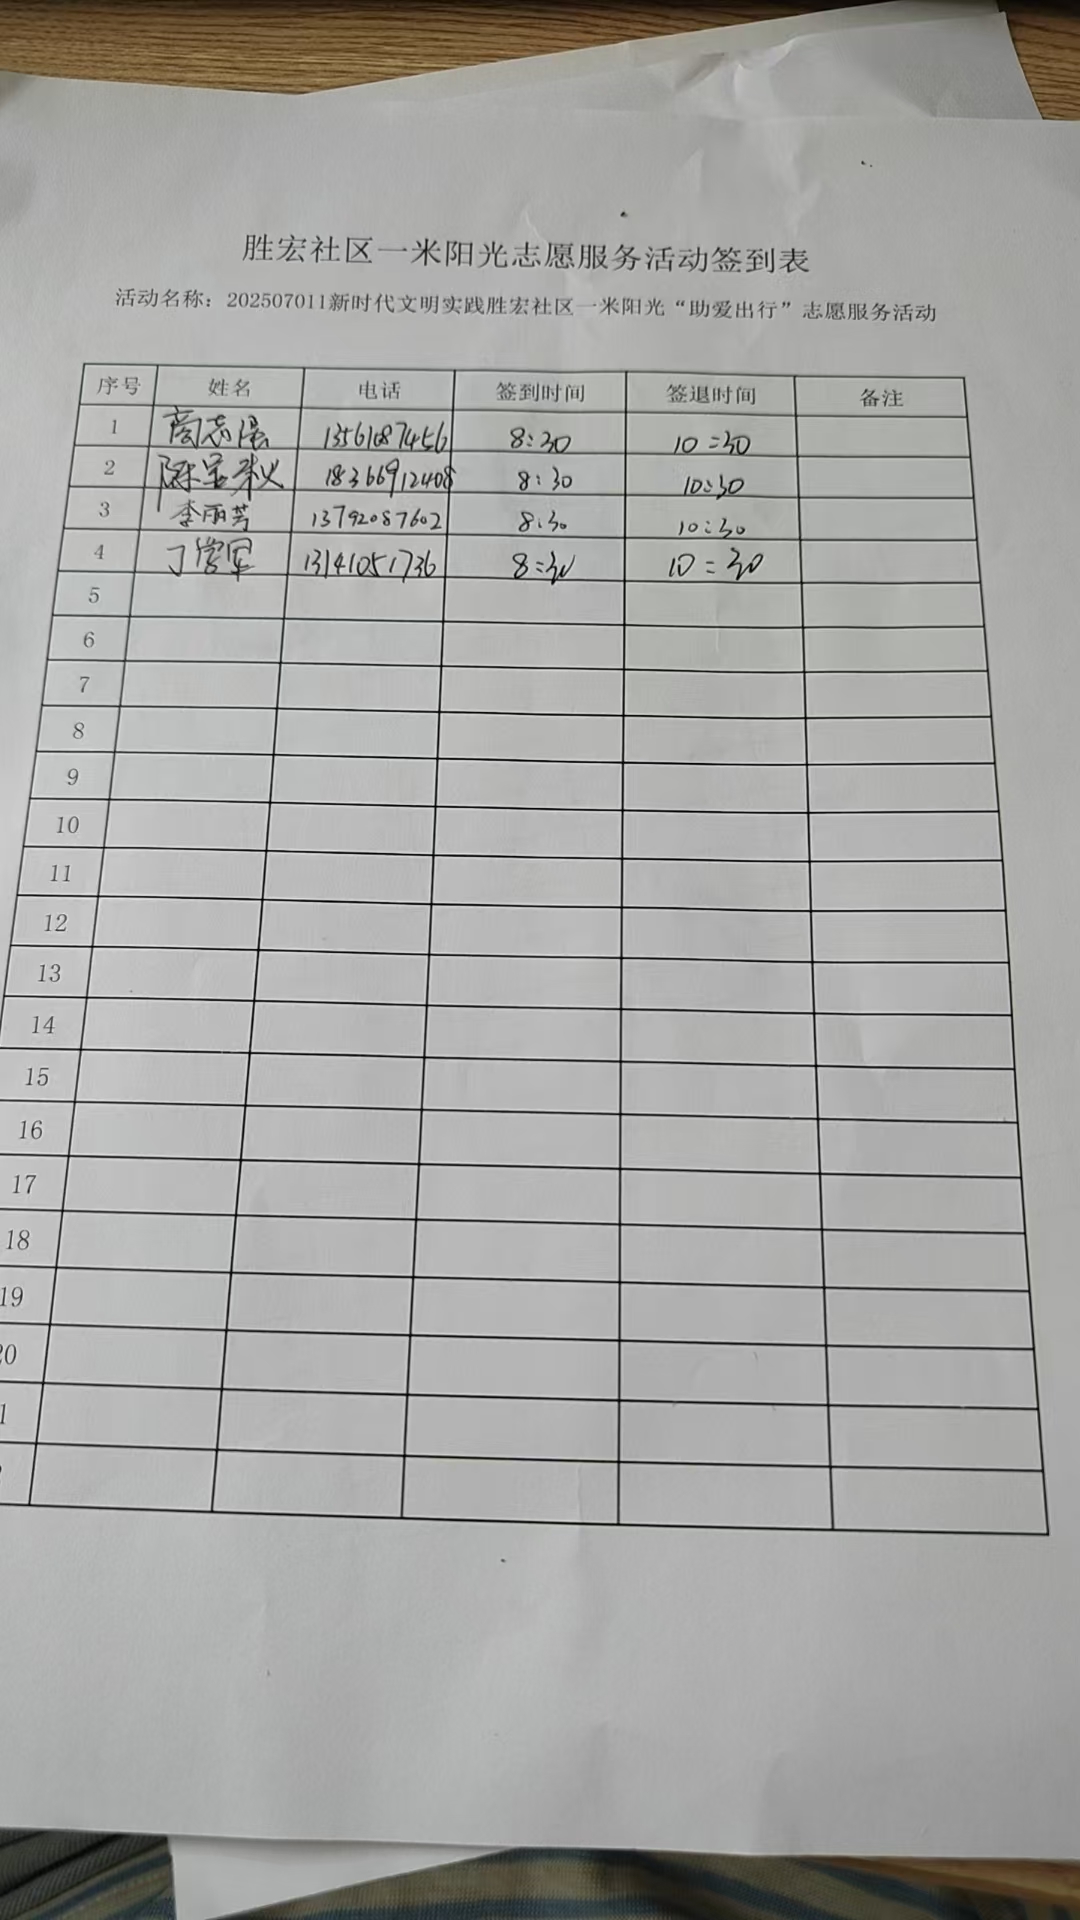 胜宏社区一米阳光志愿服务活动签到表
活动名称：202507011新时代文明实践胜宏社区一米阳光“助爱出行”志愿服务活动
序号 姓名 电话 签到时间 签退时间 备注
1 商志 13561087456 8:30 10:30
2 陈 18366912408 8:30 10:30
3 李丽芳 13792087602 8:30 10:30
4 丁学军 13141051736 8:30 10:30
5
6
7
8
9
10
11
12
13
14
15
16
17
18
19
20
1